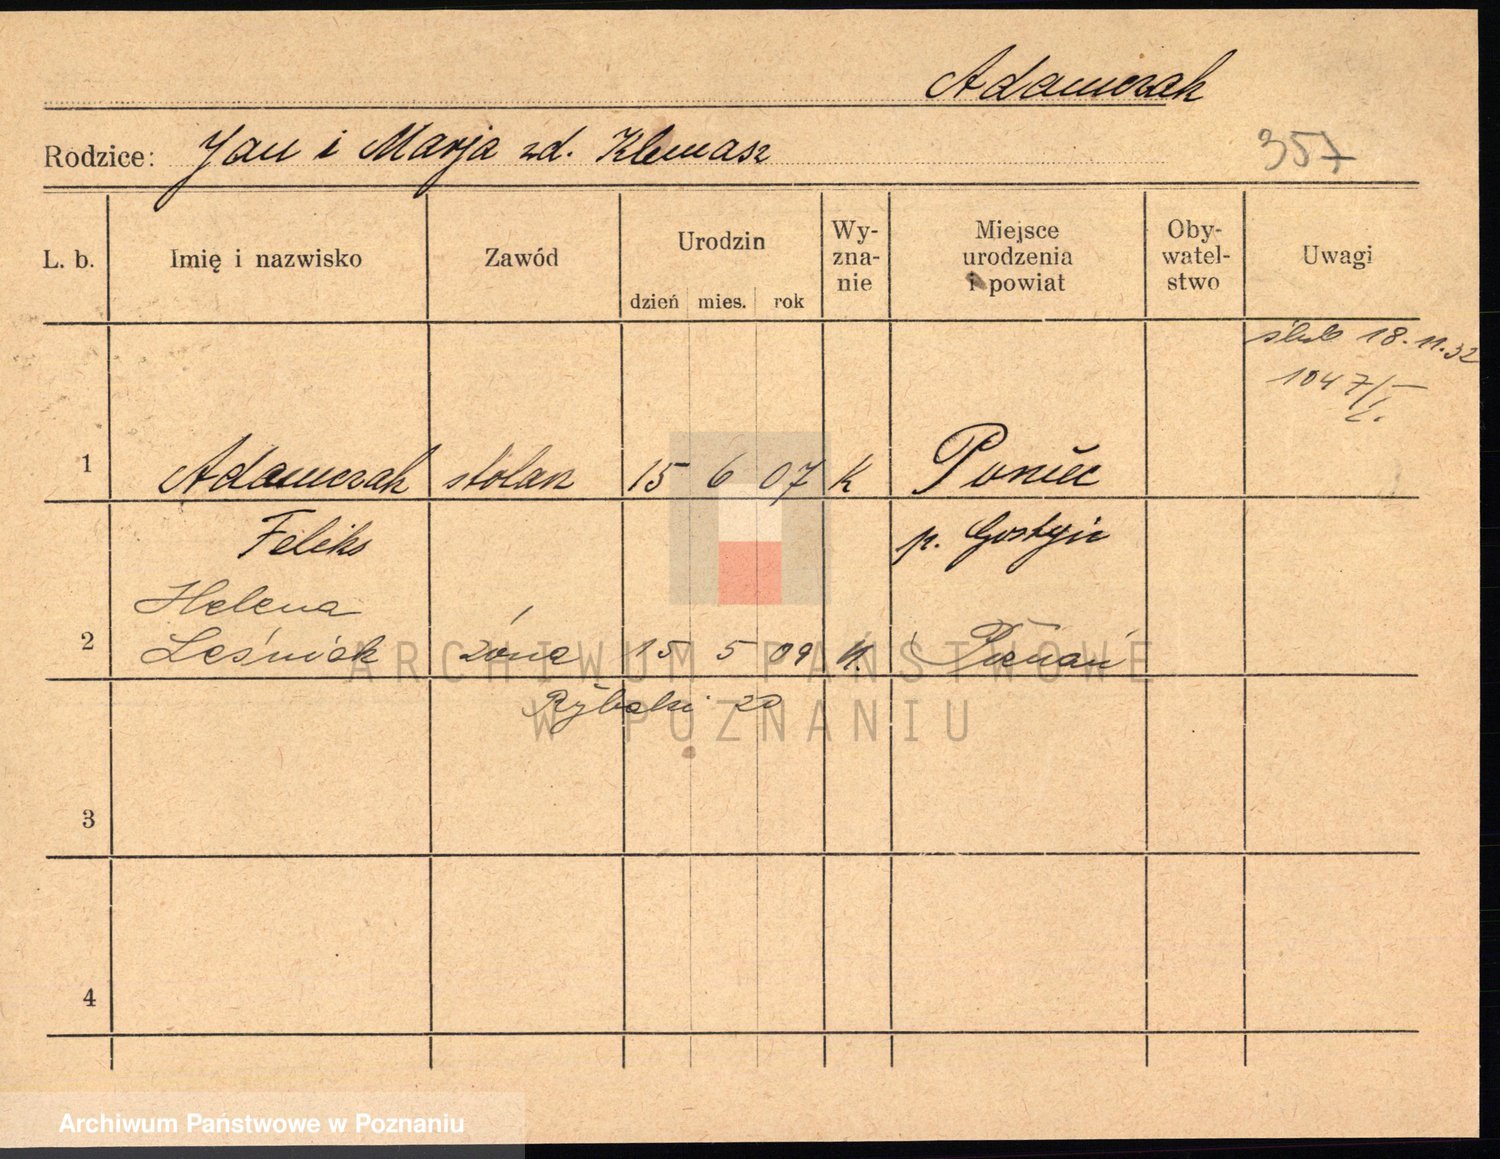 Adamczak
Rodzice: Jan i Marja zd. Klemasz
357
L. b. Imię i nazwisko Zawód Urodzin dzień mies. rok Wy-zna-nie Miejsce urodzenia i powiat Oby-watel-stwo Uwagi
ślub 18.11.32
1047/I
1 Adamczak stolarz 15 6 07 K Poniec
Feliks p. Gostyń
Helena
2 Leśniak żona 15 5 09 K. Poznań
Rybaki 20
3
4
ARCHIWUM PAŃSTWOWE
W POZNANIU
Archiwum Państwowe w Poznaniu